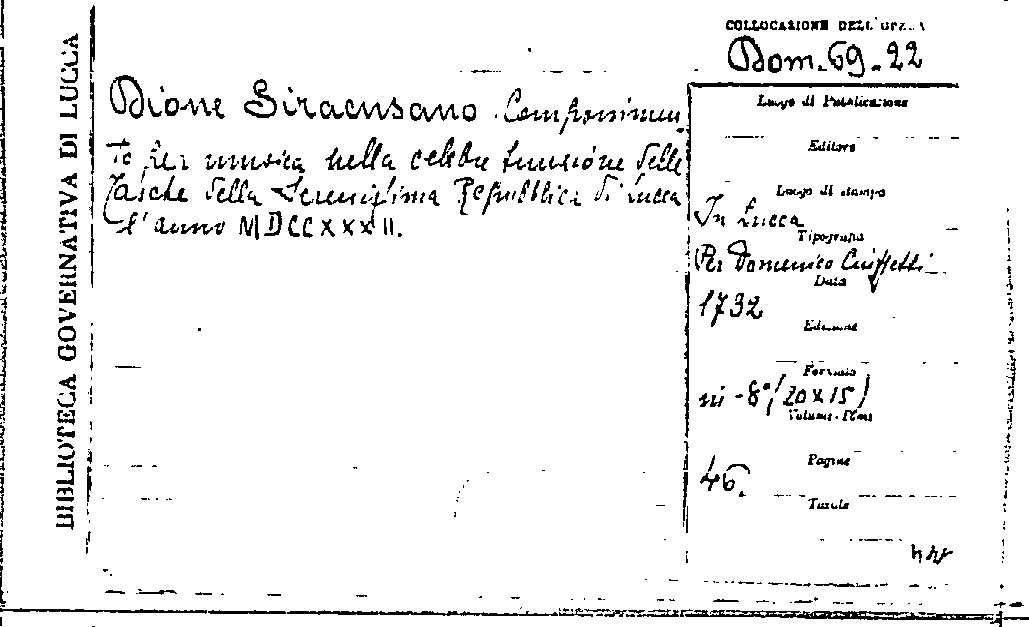 BIBLIOTECA GOVERNATIVA DI LUCCA
COLLOCAZIONE DELL'OPERA
Dom. 69. 22
Dione Siracusano Componimen
to per musica nella celebre funzione delle
Tasche della Serenissima Repubblica di Lucca
l'anno MDCCXXXII.
Luogo di Pubblicazione
Editore
Luogo di stampa
In Lucca
Tipografia
Per Domenico Ciuffetti
Data
1732
Edizione
Formato
in-8° (20x15)
Volume
Pagine
46.
Tavole